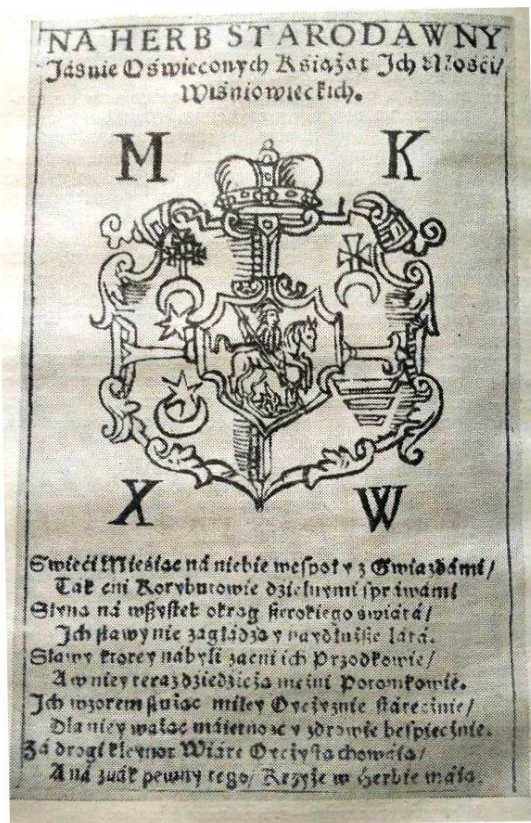 NA HERB STARODAWNY
Jáśnie Oświeconych Książąt Jch Mości/
Wiśniowieckich.
M K
X W
Swieći Mieśiąc ná niebie wespoł y z Gwiazdámi/
Ták ćni Korybutowie dźielnymi spráwámi
Słyną ná wszystek okrąg szerokiego świátá/
Jch sławy nie zágłádzą y naydłuższe látá.
Sławy ktorey nábyli zacni ich Przodkowie/
A w niey teraz dźiedźiczą męzni Potomkowie.
Jch wzorem służąc miłey Oyczyznie státecznie/
Dla niey ważąc máiętność y zdrowie bespiecznie.
Zá drogi kleynot Wiárę Oyczystą chowáią/
A ná znák pewny tego/ Krzyże w Herbie máią.